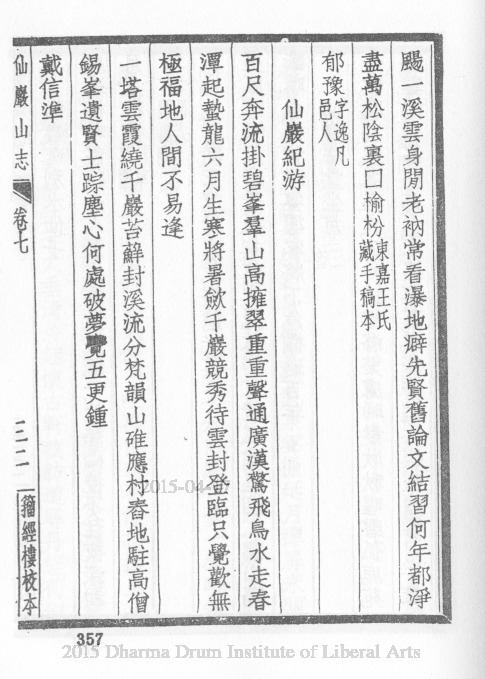 颺一溪雲身閒老衲常看瀑地癖先賢舊論文結習何年都淨
盡萬松陰裏口榆枌東嘉王氏藏手稿本
郁豫字逸凡邑人
仙巖紀游
百尺奔流掛碧峯羣山高擁翠重重聲通廣漢驚飛鳥水走春
潭起蟄龍六月生寒將暑歛千巖競秀待雲封登臨只覺歡無
極福地人間不易逢
一塔雲霞繞千巖苔蘚封溪流分梵韻山碓應村舂地駐高僧
錫峯遺賢士踪塵心何處破夢覺五更鍾
戴信準
仙巖山志
卷七
三二
籀經樓校本
2015-04
357
2015 Dharma Drum Institute of Liberal Arts